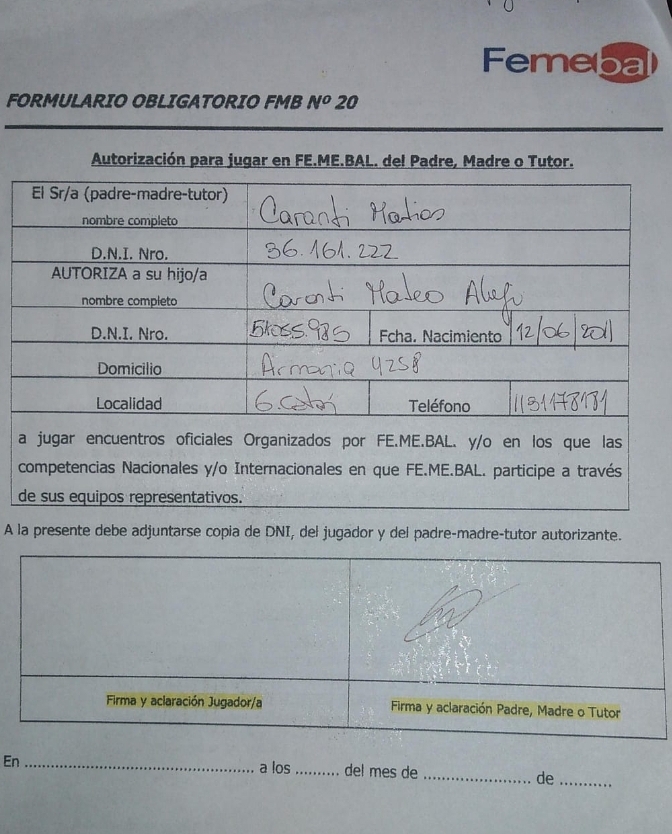 Femebal
FORMULARIO OBLIGATORIO FMB Nº 20
Autorización para jugar en FE.ME.BAL. del Padre, Madre o Tutor.
El Sr/a (padre-madre-tutor)
nombre completo
Caranti Matias
D.N.I. Nro.
36.161.222
AUTORIZA a su hijo/a
nombre completo
Caranti Mateo
D.N.I. Nro.
Fcha. Nacimiento
12/06/2011
Domicilio
Armonia 4258
Localidad
G. Catán
Teléfono
a jugar encuentros oficiales Organizados por FE.ME.BAL. y/o en los que las
competencias Nacionales y/o Internacionales en que FE.ME.BAL. participe a través
de sus equipos representativos.
A la presente debe adjuntarse copia de DNI, del jugador y del padre-madre-tutor autorizante.
Firma y aclaración Jugador/a
Firma y aclaración Padre, Madre o Tutor
En ........................................... a los .......... del mes de ........................ de ...........